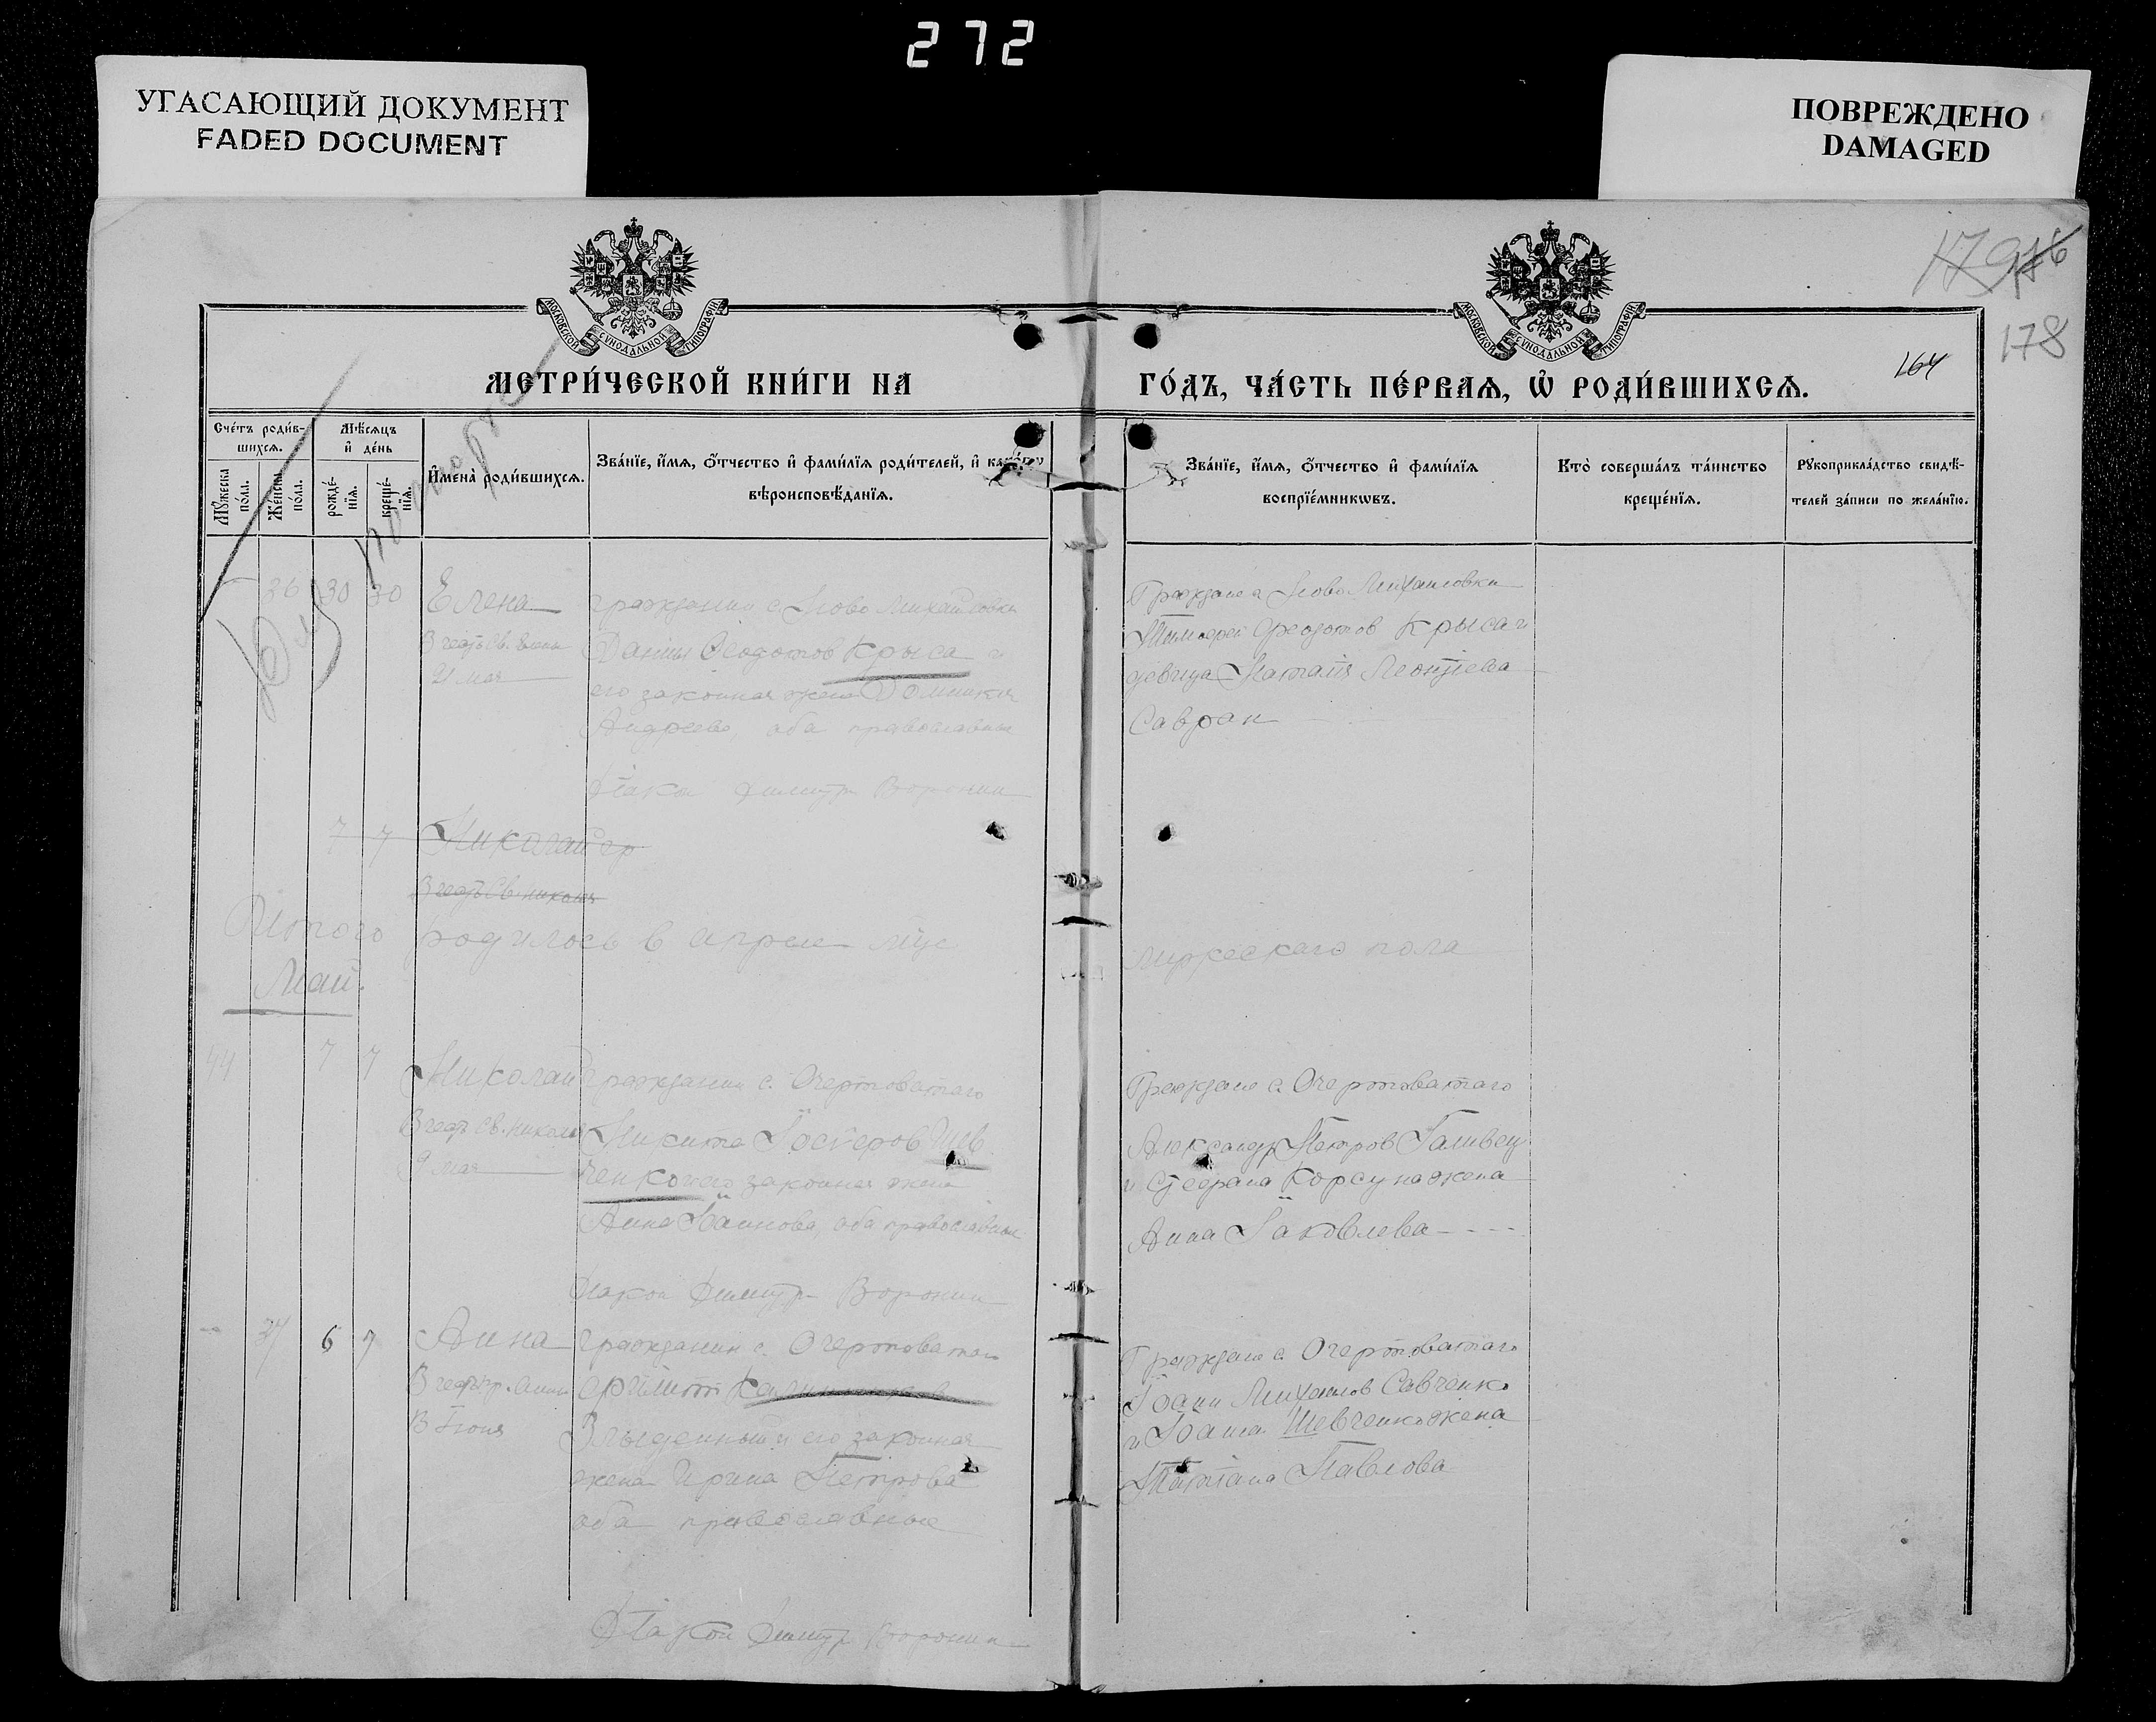 272
УГАСАЮЩИЙ ДОКУМЕНТ
FADED DOCUMENT
ПОВРЕЖДЕНО
DAMAGED
МОСКОВСКОЙ СѴНОДАЛЬНОЙ ТИПОГРАФІИ
МОСКОВСКОЙ СѴНОДАЛЬНОЙ ТИПОГРАФІИ
176
178
164
МЕТРИ́ЧЕСКОЙ КНИ́ГИ НА
ГО́ДЪ, ЧА́СТЬ ПЕ́РВАѦ, Ѽ РОДИ́ВШИХСѦ.
Сче́тъ роди́в-
шихсѧ.
Мꙋ́жеска по́ла.
Же́нска по́ла.
Мѣ́сѧцъ и҆ де́нь
рожде́-
нїѧ.
креще́-
нїѧ.
И҆мена̀ роди́вшихсѧ.
Зва́нїе, и҆́мѧ, ѻ҆́тчество и҆ фами́лїѧ роди́телей, и҆ како́гѡ
вѣроисповѣ́данїѧ.
Зва́нїе, и҆́мѧ, ѻ҆́тчество и҆ фами́лїѧ
воспрїе́мникѡвъ.
Кто̀ соверша́лъ та́инство
креще́нїѧ.
Рꙋкоприкла́дство свидѣ́-
телей за́писи по жела́нїю.
36 30 30 Елена
21 мая
гражданин с. Ново Михайловки
Данил Феодотов Крыса и
его законная жена Домникия
Андреева оба православные
Граждане с Ново Михайловки
Тимофей Феодотов Крыса и
девица Наталия Леонтиева
Савран
Диакон Димитр Воронин
7 7 Николай
В честь Св. Николая
Итого родилось в апреле м-це
мужескаго пола
Май.
44 7 7 Николай
В честь Св. Николая
9 мая
гражданин с. Очертоватаго
Никита Иосифов Шев
ченко и его законная жена
Анна Иоаннова, оба православные
Граждане с. Очертоватаго
Александр Петров Галивец
и Стефана Корсуна жена
Анна Иаковлева
Диакон Димитр Воронин
37 6 7 Анна
гражданин с. Очертоватаго
Злыденный и его законная
жена Ирина Петрова
оба православные
Граждане с. Очертоватаго
Иоанн Михаилов Савченко
и Иоанна Шевченко жена
Татиана Павлова
Диакон Димитр Воронин